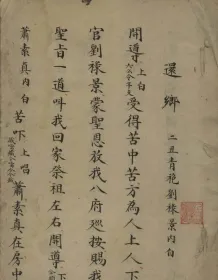 還鄉
二丑青袍劉祿景內白
開導上白受得苦中苦方為人上人下
官劉祿景蒙聖恩放我八府廵按賜我
聖旨一道叫我回家祭祖左右開導下
蕭素真內白苦吓上唱蕭素真在房中